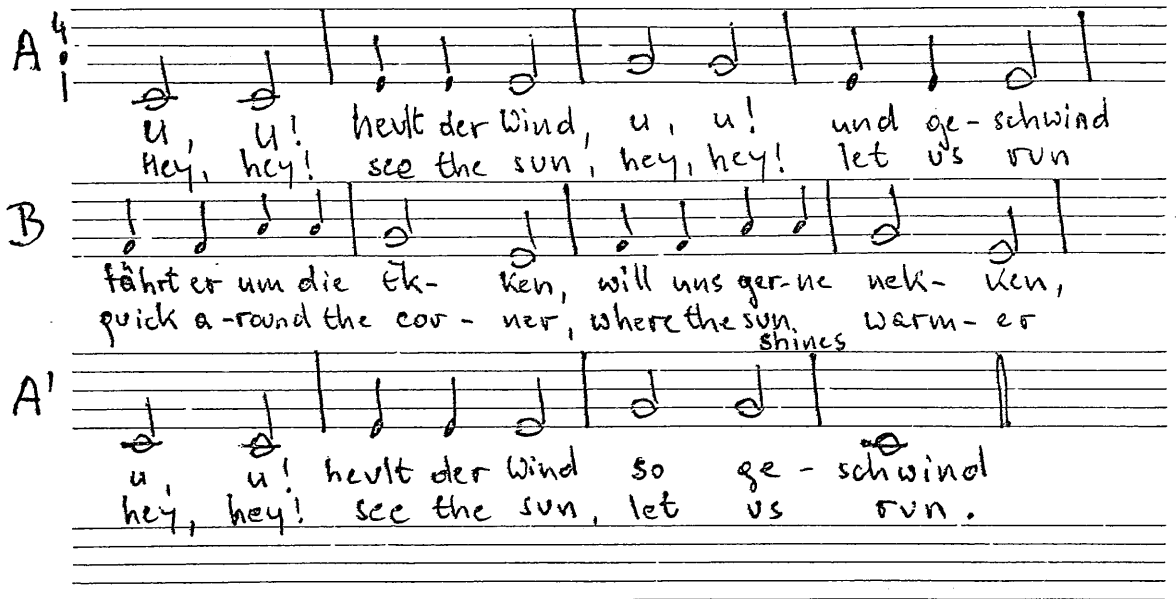 A 4
u, u! heult der Wind, u, u! und ge-schwind
Hey, hey! see the sun, hey, hey! let us run
B
fährt er um die Ek- ken, will uns ger-ne nek- ken,
quick a-round the cor - ner, where the sun shines warm-er
A'
u, u! heult der Wind so ge - schwind
hey, hey! see the sun, let us run.